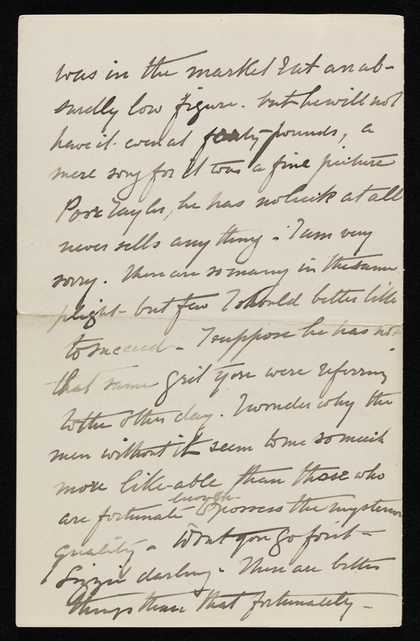 was in the market & at an ab-
surdly low figure. but he will not
have it even at forty pounds, a
mere song for it was a fine picture
Poor Taylor, he has no luck at all
never sells anything - I am very
sorry. There are so many in the same
plight - but few I should better like
to succeed - I suppose he has not
that same grit you were referring
to the other day. I wonder why the
men without it seem to me so much
more like-able than those who
are fortunate enough to possess the mysterious
quality - Wont you go first -
Lizzie darling. There are better
things than that fortunately -